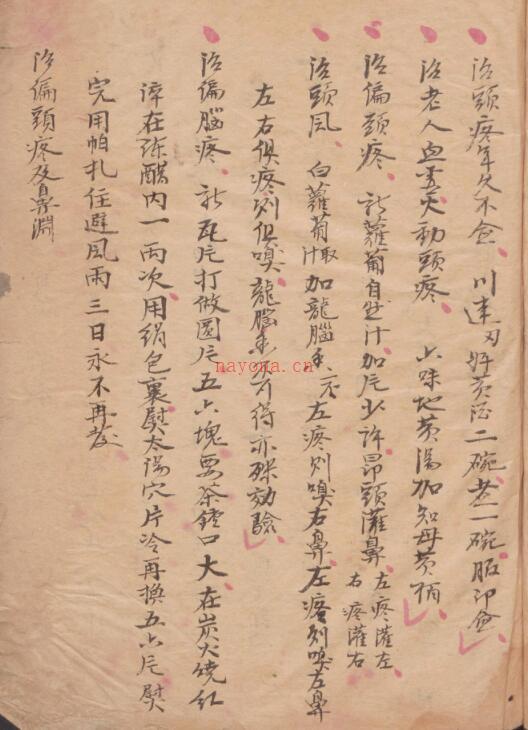 治頭疼年久不愈 川連 好黃酒二碗煮一碗服即愈
治老人血虛火動頭疼 六味地黃湯加知母黃柏
治偏頭疼 新蘿蔔自然汁加片少許昂頭灌鼻 左疼灌左右疼灌右
治頭風 白蘿蔔汁取加龍腦 左疼則嗅右鼻左疼則嗅左鼻
左右俱疼則俱嗅龍腦 亦 效驗
治偏腦疼 新瓦片打做圓片五六塊要茶鍾口大在炭火燒紅
淬在陳醋內一兩次用絹包裹熨太陽穴片冷再換五六片熨
完用帕扎住避風雨三日永不再發
治偏頭疼及鼻淵
nayona.cn